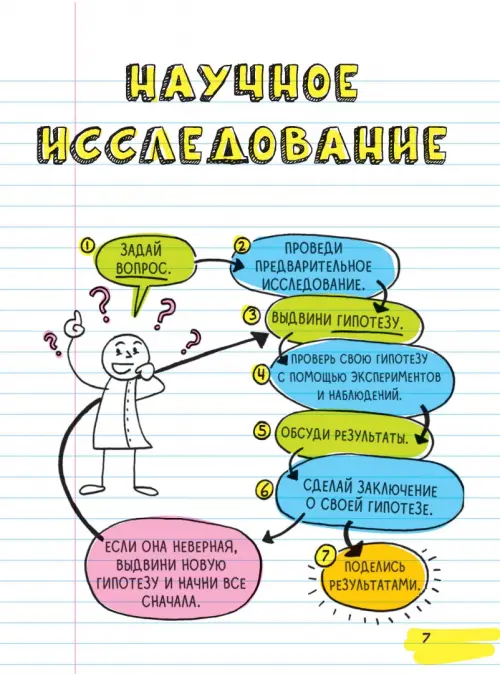 НАУЧНОЕ
ИССЛЕДОВАНИЕ
1
ЗАДАЙ
ВОПРОС.
2
ПРОВЕДИ
ПРЕДВАРИТЕЛЬНОЕ
ИССЛЕДОВАНИЕ.
3
ВЫДВИНИ ГИПОТЕЗУ.
4
ПРОВЕРЬ СВОЮ ГИПОТЕЗУ
С ПОМОЩЬЮ ЭКСПЕРИМЕНТОВ
И НАБЛЮДЕНИЙ.
5
ОБСУДИ РЕЗУЛЬТАТЫ.
6
СДЕЛАЙ ЗАКЛЮЧЕНИЕ
О СВОЕЙ ГИПОТЕЗЕ.
ЕСЛИ ОНА НЕВЕРНАЯ,
ВЫДВИНИ НОВУЮ
ГИПОТЕЗУ И НАЧНИ ВСЕ
СНАЧАЛА.
7
ПОДЕЛИСЬ
РЕЗУЛЬТАТАМИ.
? ? ? ?
7